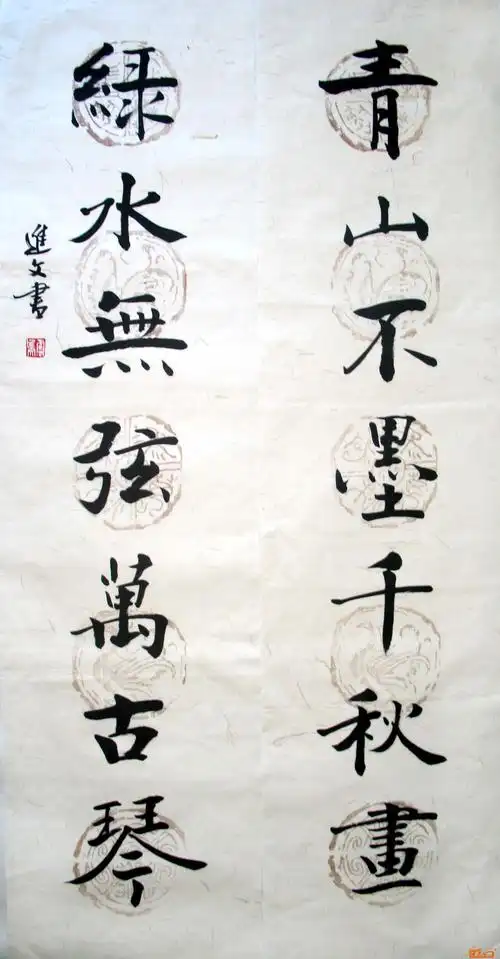 青山不墨千秋畫
綠水無弦萬古琴
進文書